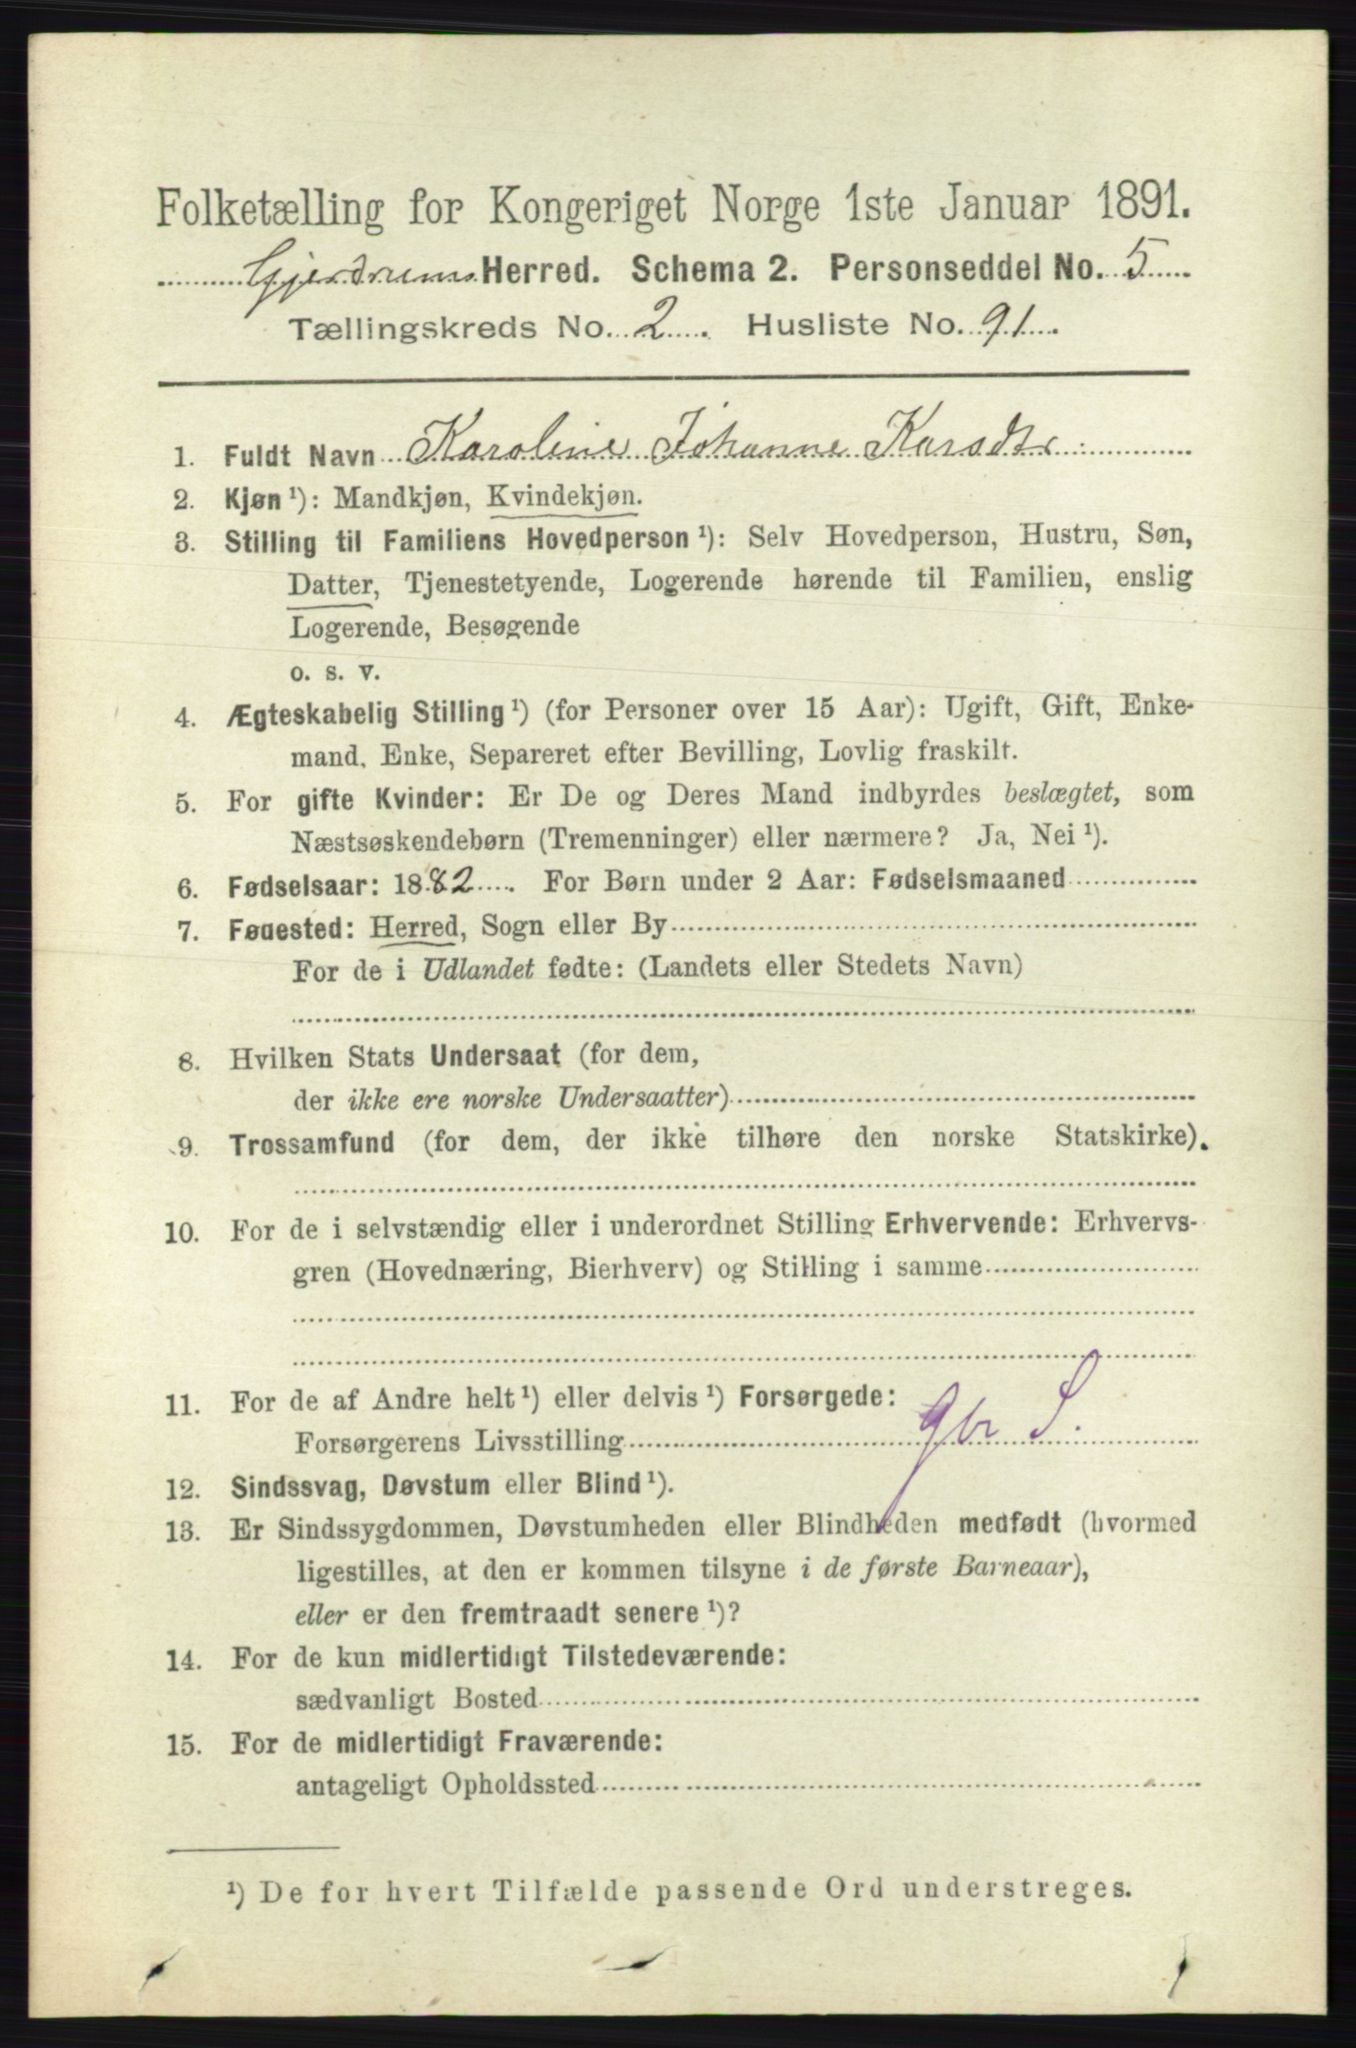 Folketælling for Kongeriget Norge 1ste Januar 1891.
Gjerdrum Herred. Schema 2. Personseddel No. 5
Tællingskreds No. 2. Husliste No. 91.
1. Fuldt Navn Karoline Johanne Karsdtr
2. Kjøn ¹): Mandkjøn, Kvindekjøn.
3. Stilling til Familiens Hovedperson ¹): Selv Hovedperson, Hustru, Søn,
Datter, Tjenestetyende, Logerende hørende til Familien, enslig
Logerende, Besøgende
o. s. v.
4. Ægteskabelig Stilling ¹) (for Personer over 15 Aar): Ugift, Gift, Enke-
mand, Enke, Separeret efter Bevilling, Lovlig fraskilt.
5. For gifte Kvinder: Er De og Deres Mand indbyrdes beslægtet, som
Næstsøskendebørn (Tremenninger) eller nærmere? Ja, Nei ¹).
6. Fødselsaar: 1882. For Børn under 2 Aar: Fødselsmaaned
7. Føuested: Herred, Sogn eller By
For de i Udlandet fødte: (Landets eller Stedets Navn)
8. Hvilken Stats Undersaat (for dem,
der ikke ere norske Undersaatter)
9. Trossamfund (for dem, der ikke tilhøre den norske Statskirke).
10. For de i selvstændig eller i underordnet Stilling Erhvervende: Erhvervs-
gren (Hovednæring, Bierhverv) og Stilling i samme
11. For de af Andre helt ¹) eller delvis ¹) Forsørgede:
Forsørgerens Livsstilling gbr S.
12. Sindssvag, Døvstum eller Blind ¹).
13. Er Sindssygdommen, Døvstumheden eller Blindheden medfødt (hvormed
ligestilles, at den er kommen tilsyne i de første Barneaar),
eller er den fremtraadt senere ¹)?
14. For de kun midlertidigt Tilstedeværende:
sædvanligt Bosted
15. For de midlertidigt Fraværende:
antageligt Opholdssted
¹) De for hvert Tilfælde passende Ord understreges.